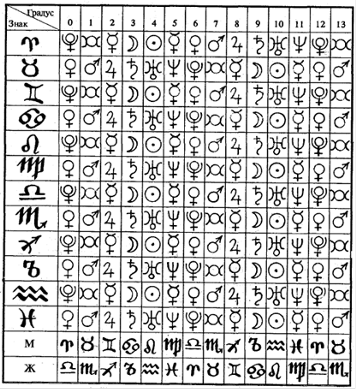 Градус
Знак 0 1 2 3 4 5 6 7 8 9 10 11 12 13
М
Ж